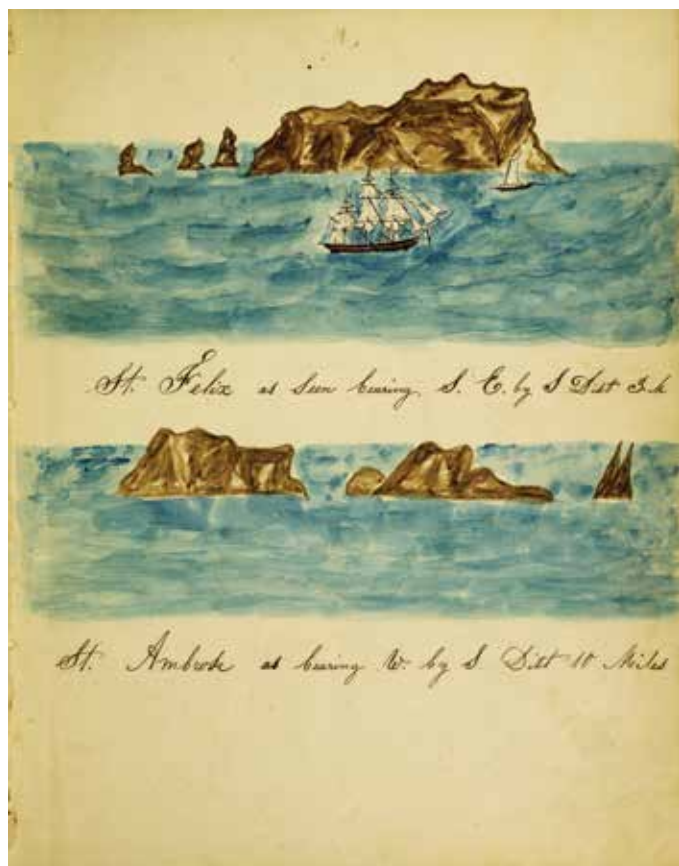 St. Felix as Seen bearing S. E. by S Dist
St. Ambrose as bearing W. by S Dist 10 Miles